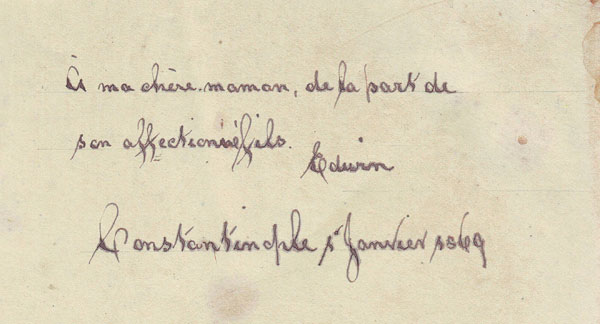 À ma chère maman, de la part de
son affectionné fils.
Edwin
Constantinople 1r Janvier 1869